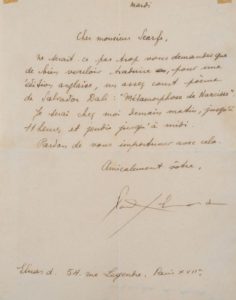 mardi
Cher monsieur Scarfe,
Ne serait-ce pas trop vous demander que
de bien vouloir traduire, pour une
édition anglaise, un assez court poème
de Salvador Dali: "Métamorphose de Narcisse"
Je serai chez moi demain matin, jusqu'à
11 heures, et jusqu'à midi.
Pardon de vous importuner avec cela.
Amicalement vôtre,
Eluard. 54, rue Legendre. Paris XVIIe.